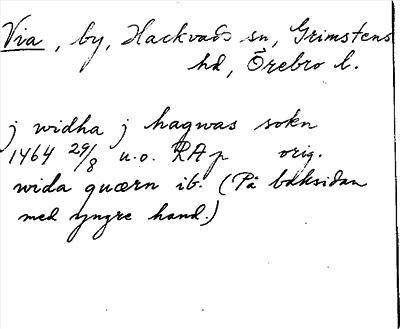 Via, by, Hackvads sn, Grimstens
hd, Örebro l.
j widha j hagwas sokn
1464 29/8 u.o. RAp orig.
wida quærn ib. (På baksidan
med yngre hand.)